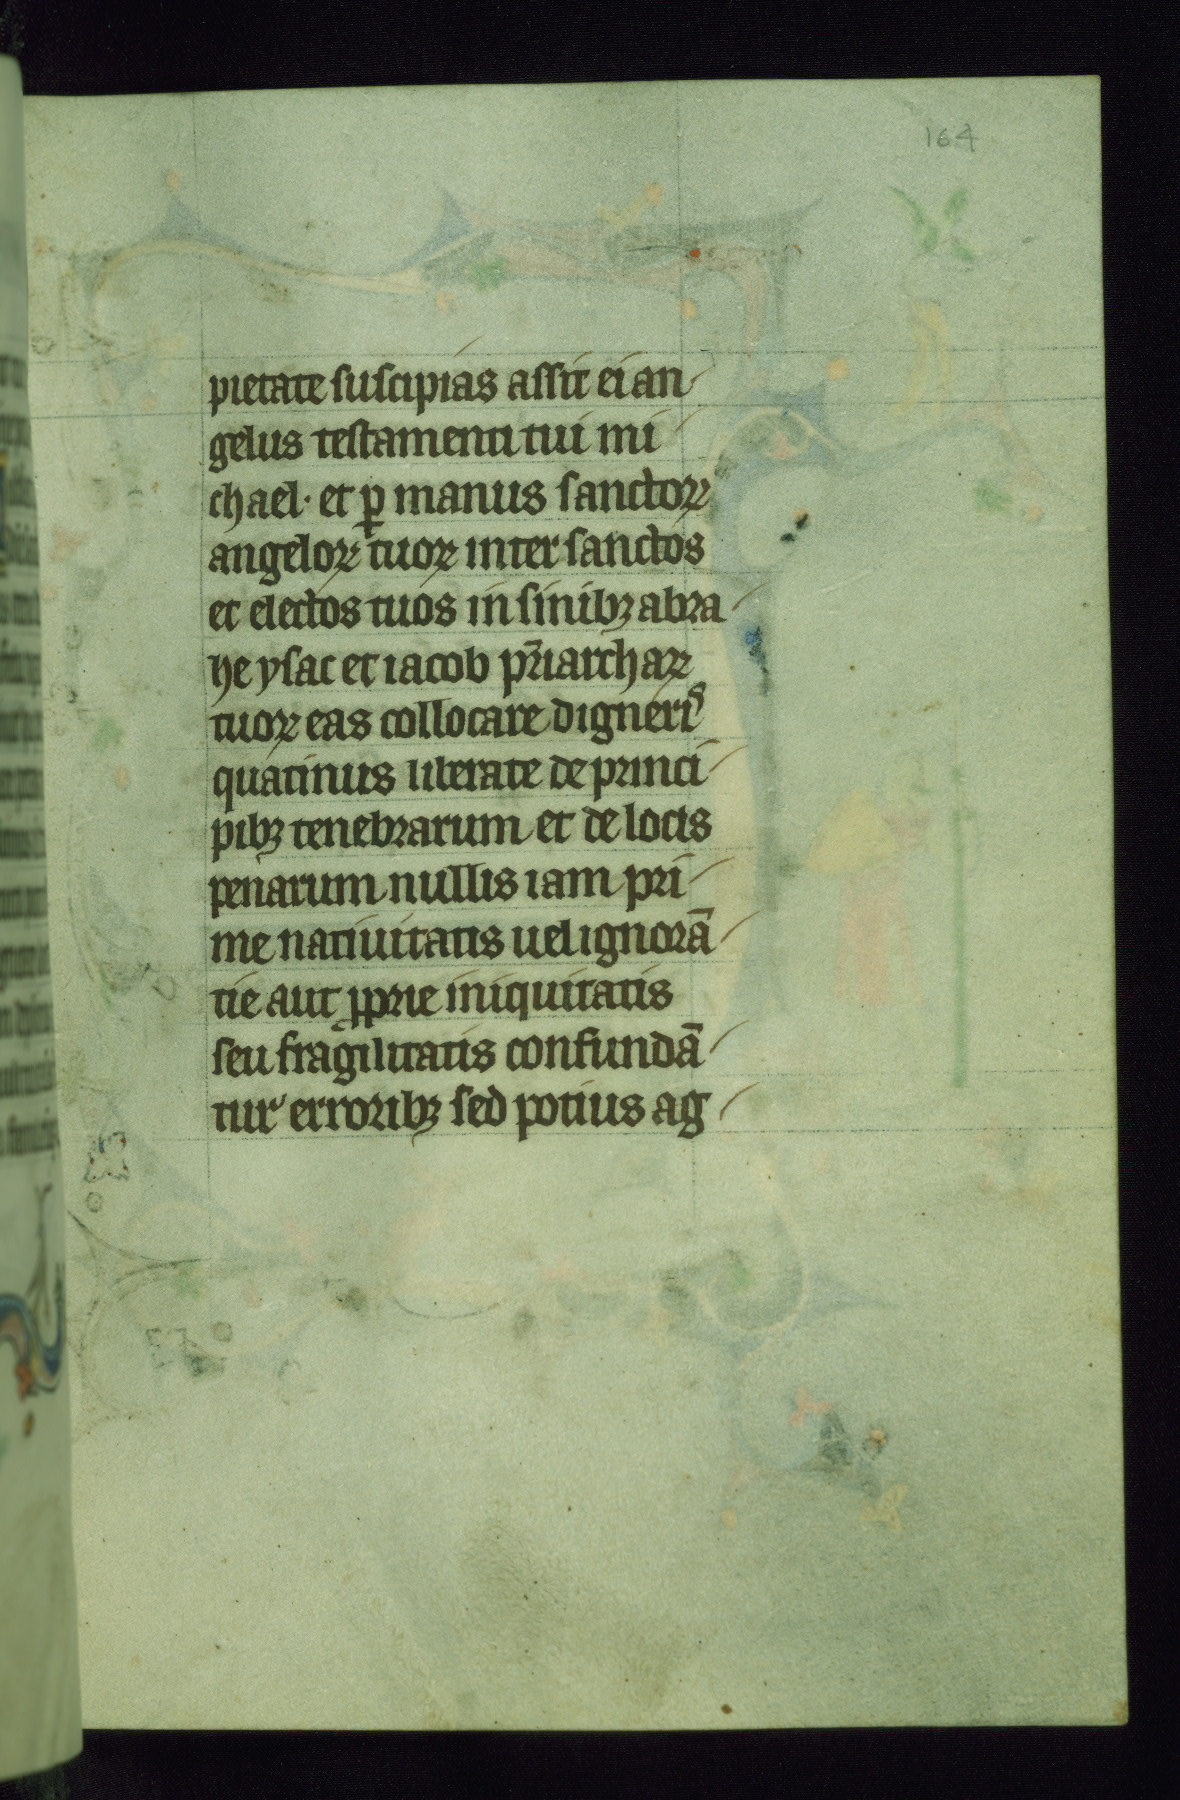 164
pietate suscipias assit ei an
gelus testamenti tui mi
chael· et ꝑ manus sanctoꝝ
angeloꝝ tuoꝝ inter sanctos
et electos tuos in sinibꝫ abra
he ysac et iacob pr̄iarchaꝝ
tuoꝝ eas collocare digneriˢ
quatinus liberate de princi
pibꝫ tenebrarum et de locis
penarum nullis iam pri
me natiuitatis uel ignorā
tie aut ꝓprie iniquitatis
seu fragilitatis confundā
tur erroribꝫ sed potius ag